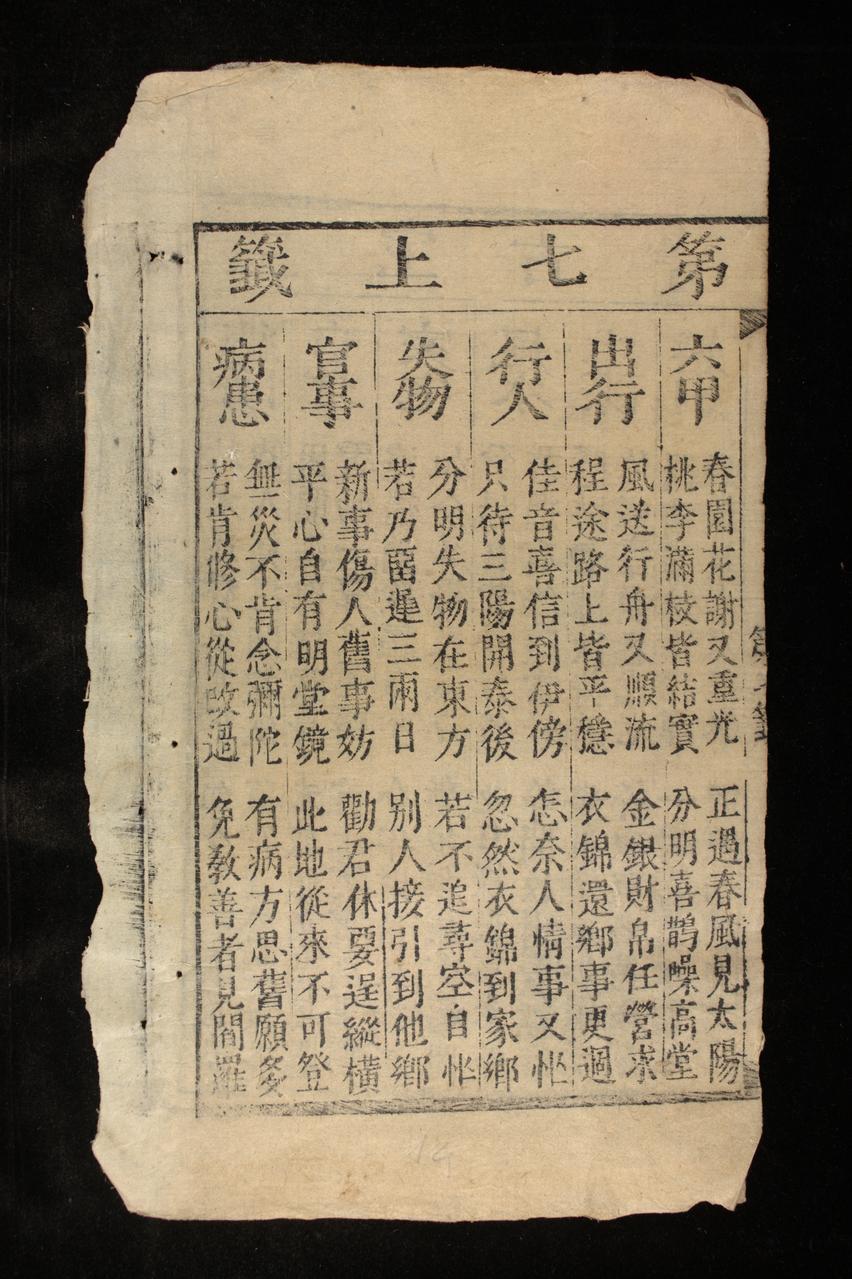 第七上籤
六甲
春園花謝又重光　正遇春風見太陽
桃李滿枝皆結實　分明喜鹊噪高堂
出行
風送行舟又順流　金銀財帛任營求
程途路上皆平穩　衣錦還鄉事更過
行人
佳音喜信到伊傍　怎奈人情事又忙
只待三陽開泰後　忽然衣錦到家鄉
失物
分明失物在東方　若不追尋空自忙
若乃畱遲三兩日　別人接引到他鄉
官事
新事傷人舊事妨　勸君休要逞縱橫
平心自有明堂鏡　此地從來不可登
病患
無災不肯念彌陀　有病方思舊願多
若肯修心從改過　免教善者見閻羅